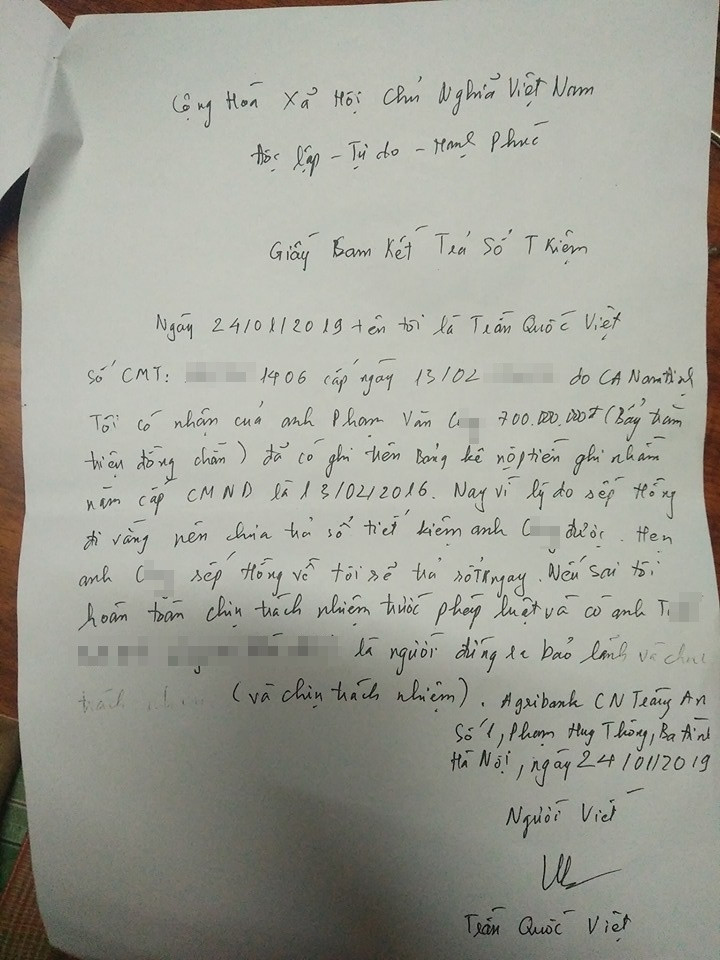 Cộng Hoà Xã Hội Chủ Nghĩa Việt Nam
Độc lập - Tự do - Hạnh Phúc
Giấy Cam Kết Trả Sổ T Kiệm
Ngày 24/01/2019 tên tôi là Trần Quốc Việt
Số CMT: 1406 cấp ngày 13/02 do CA Nam Định
Tôi có nhận của anh Phạm Văn C g 700.000.000đ (Bảy trăm
triệu đồng chẵn) đã có ghi trên Bảng kê nộp tiền ghi nhầm
năm cấp CMND là 13/02/2016. Nay vì lý do sếp Hồng
đi vắng nên chưa trả sổ tiết kiệm anh C g được. Hẹn
anh C g sếp Hồng về tôi sẽ trả sổ TK ngay. Nếu sai tôi
hoàn toàn chịu trách nhiệm trước pháp luật và có anh T
là người đứng ra bảo lãnh và chịu
trách nhiệm (và chịu trách nhiệm). Agribank CN Tràng An
Số 1, Phạm Huy Thông, Ba Đình
Hà Nội, ngày 24/01/2019
Người Viết
Trần Quốc Việt